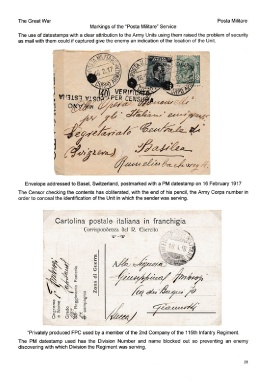 The Great War
Posta Militare
Markings of the "Posta Militare" Service
The use of datestamps with a clear attribution to the Army Units using them raised the problem of security
as mail with them could if captured give the enemy an indication of the location of the Unit.
VERIFICATO
PER CENSURA
POSTA ESTERA
per gli Italiani
Segretariato Centrale
Basilea
(Svizzera)
Envelope addressed to Basel, Switzerland, postmarked with a PM datestamp on 16 February 1917
The Censor checking the contents has obliterated, with the end of his pencil, the Army Corps number in
order to conceal the identification of the Unit in which the sender was serving.
Cartolina postale italiana in franchigia
Corrispondenza del R. Esercito
Zona di Guerra
Alla Signora
Giuseppina
Via dei Borgia
(Lucca)
"Privately produced FPC used by a member of the 2nd Company of the 115th Infantry Regiment
The PM datestamp used has the Division Number and name blocked out so preventing an enemy
discovering with which Division the Regiment was serving.